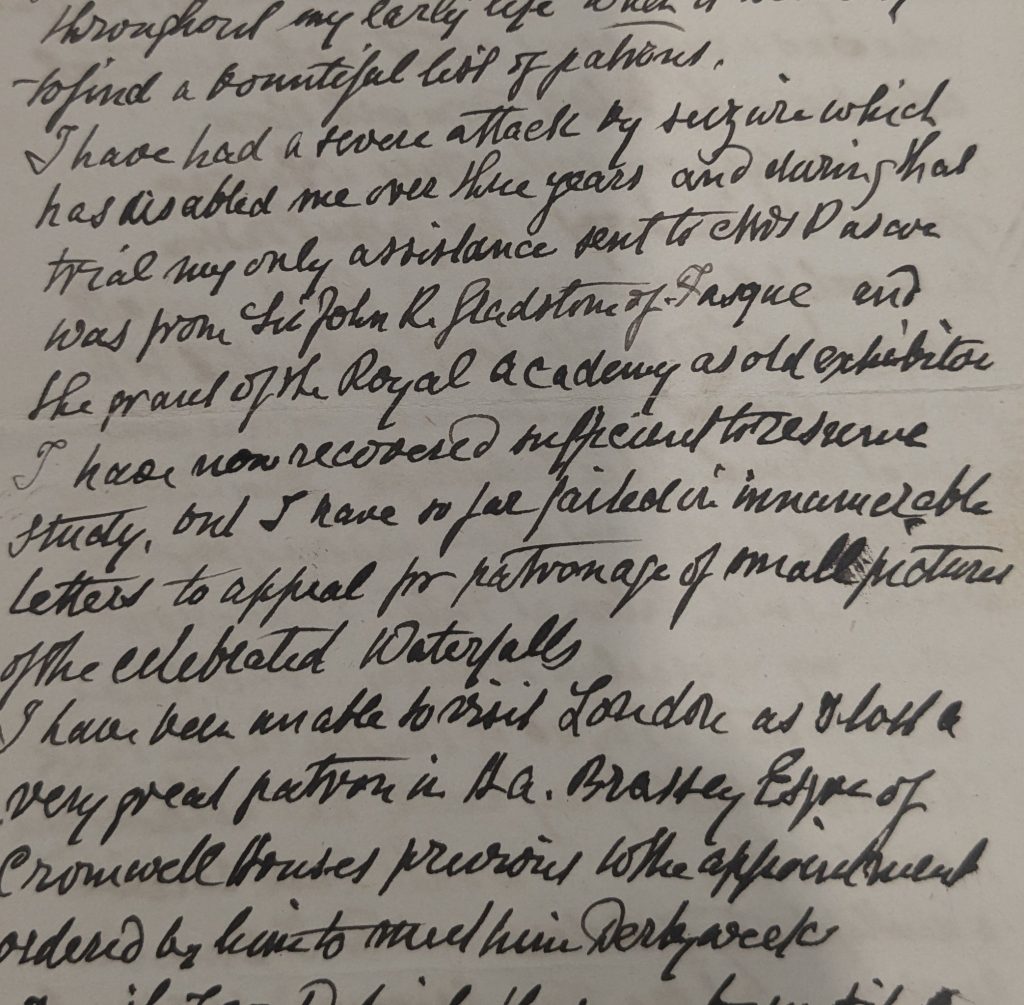 throughout my early life when it
to find a bountiful list of patrons.
I have had a severe attack by seizure which
has disabled me over three years and during that
trial my only assistance sent to Mrs Pascoe
was from Sir John R. Gladstone of Fasque and
the grant of the Royal Academy as old exhibitor
I have now recovered sufficient to reserve
study, but I have so far failed in innumerable
letters to appeal for patronage of small pictures
of the celebrated Waterfalls
I have been unable to visit London as I lost a
very great patron in H.A. Brassey Esqre of
Cromwell Houses previous to the appointment
ordered by him to meet him Derby week